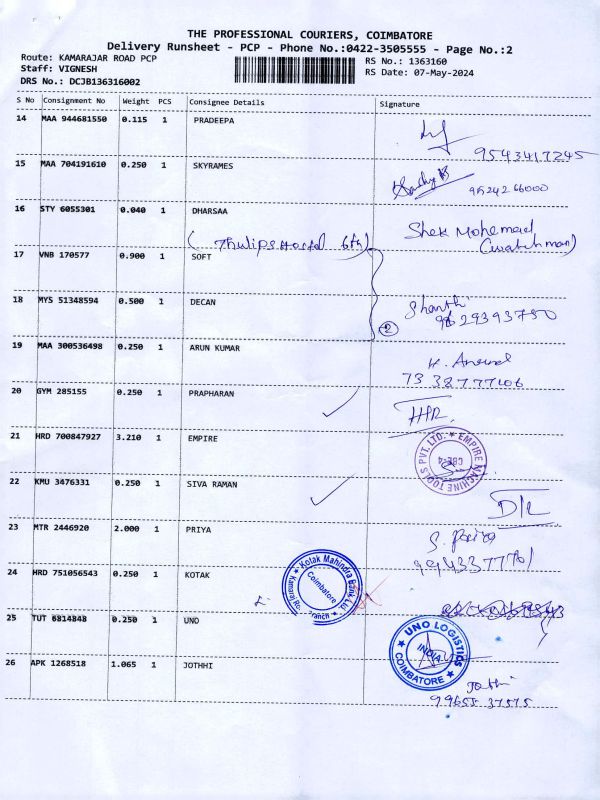 THE PROFESSIONAL COURIERS, COIMBATORE
Delivery Runsheet - PCP - Phone No.:0422-3505555 - Page No.:2
Route: KAMARAJAR ROAD PCP
RS No.: 1363160
Staff: VIGNESH
RS Date: 07-May-2024
DRS No.: DCJB136316002
S No Consignment No Weight PCS Consignee Details Signature
14 MAA 944681550 0.115 1 PRADEEPA
9543417245
15 MAA 704191610 0.250 1 SKYRAMES
9524266000
16 STY 6055301 0.040 1 DHARSAA
Shek Mohemad
17 VNB 170577 0.900 1 SOFT
18 MYS 51348594 0.500 1 DECAN
Shanthi
9629393750
2
19 MAA 300536498 0.250 1 ARUN KUMAR
20 GYM 285155 0.250 1 PRAPHARAN
21 HRD 700847927 3.210 1 EMPIRE
EMPIRE MACHINE TOOLS PVT. LTD.
CBE-4
22 KMU 3476331 0.250 1 SIVA RAMAN
23 MTR 2446920 2.000 1 PRIYA
S. Priya
24 HRD 751056543 0.250 1 KOTAK
Kotak Mahindra Bank Ltd.
Coimbatore
25 TUT 6814848 0.250 1 UNO
UNO LOGISTICS
INDIA
COIMBATORE
26 APK 1268518 1.065 1 JOTHHI
Jothi
99655 37575